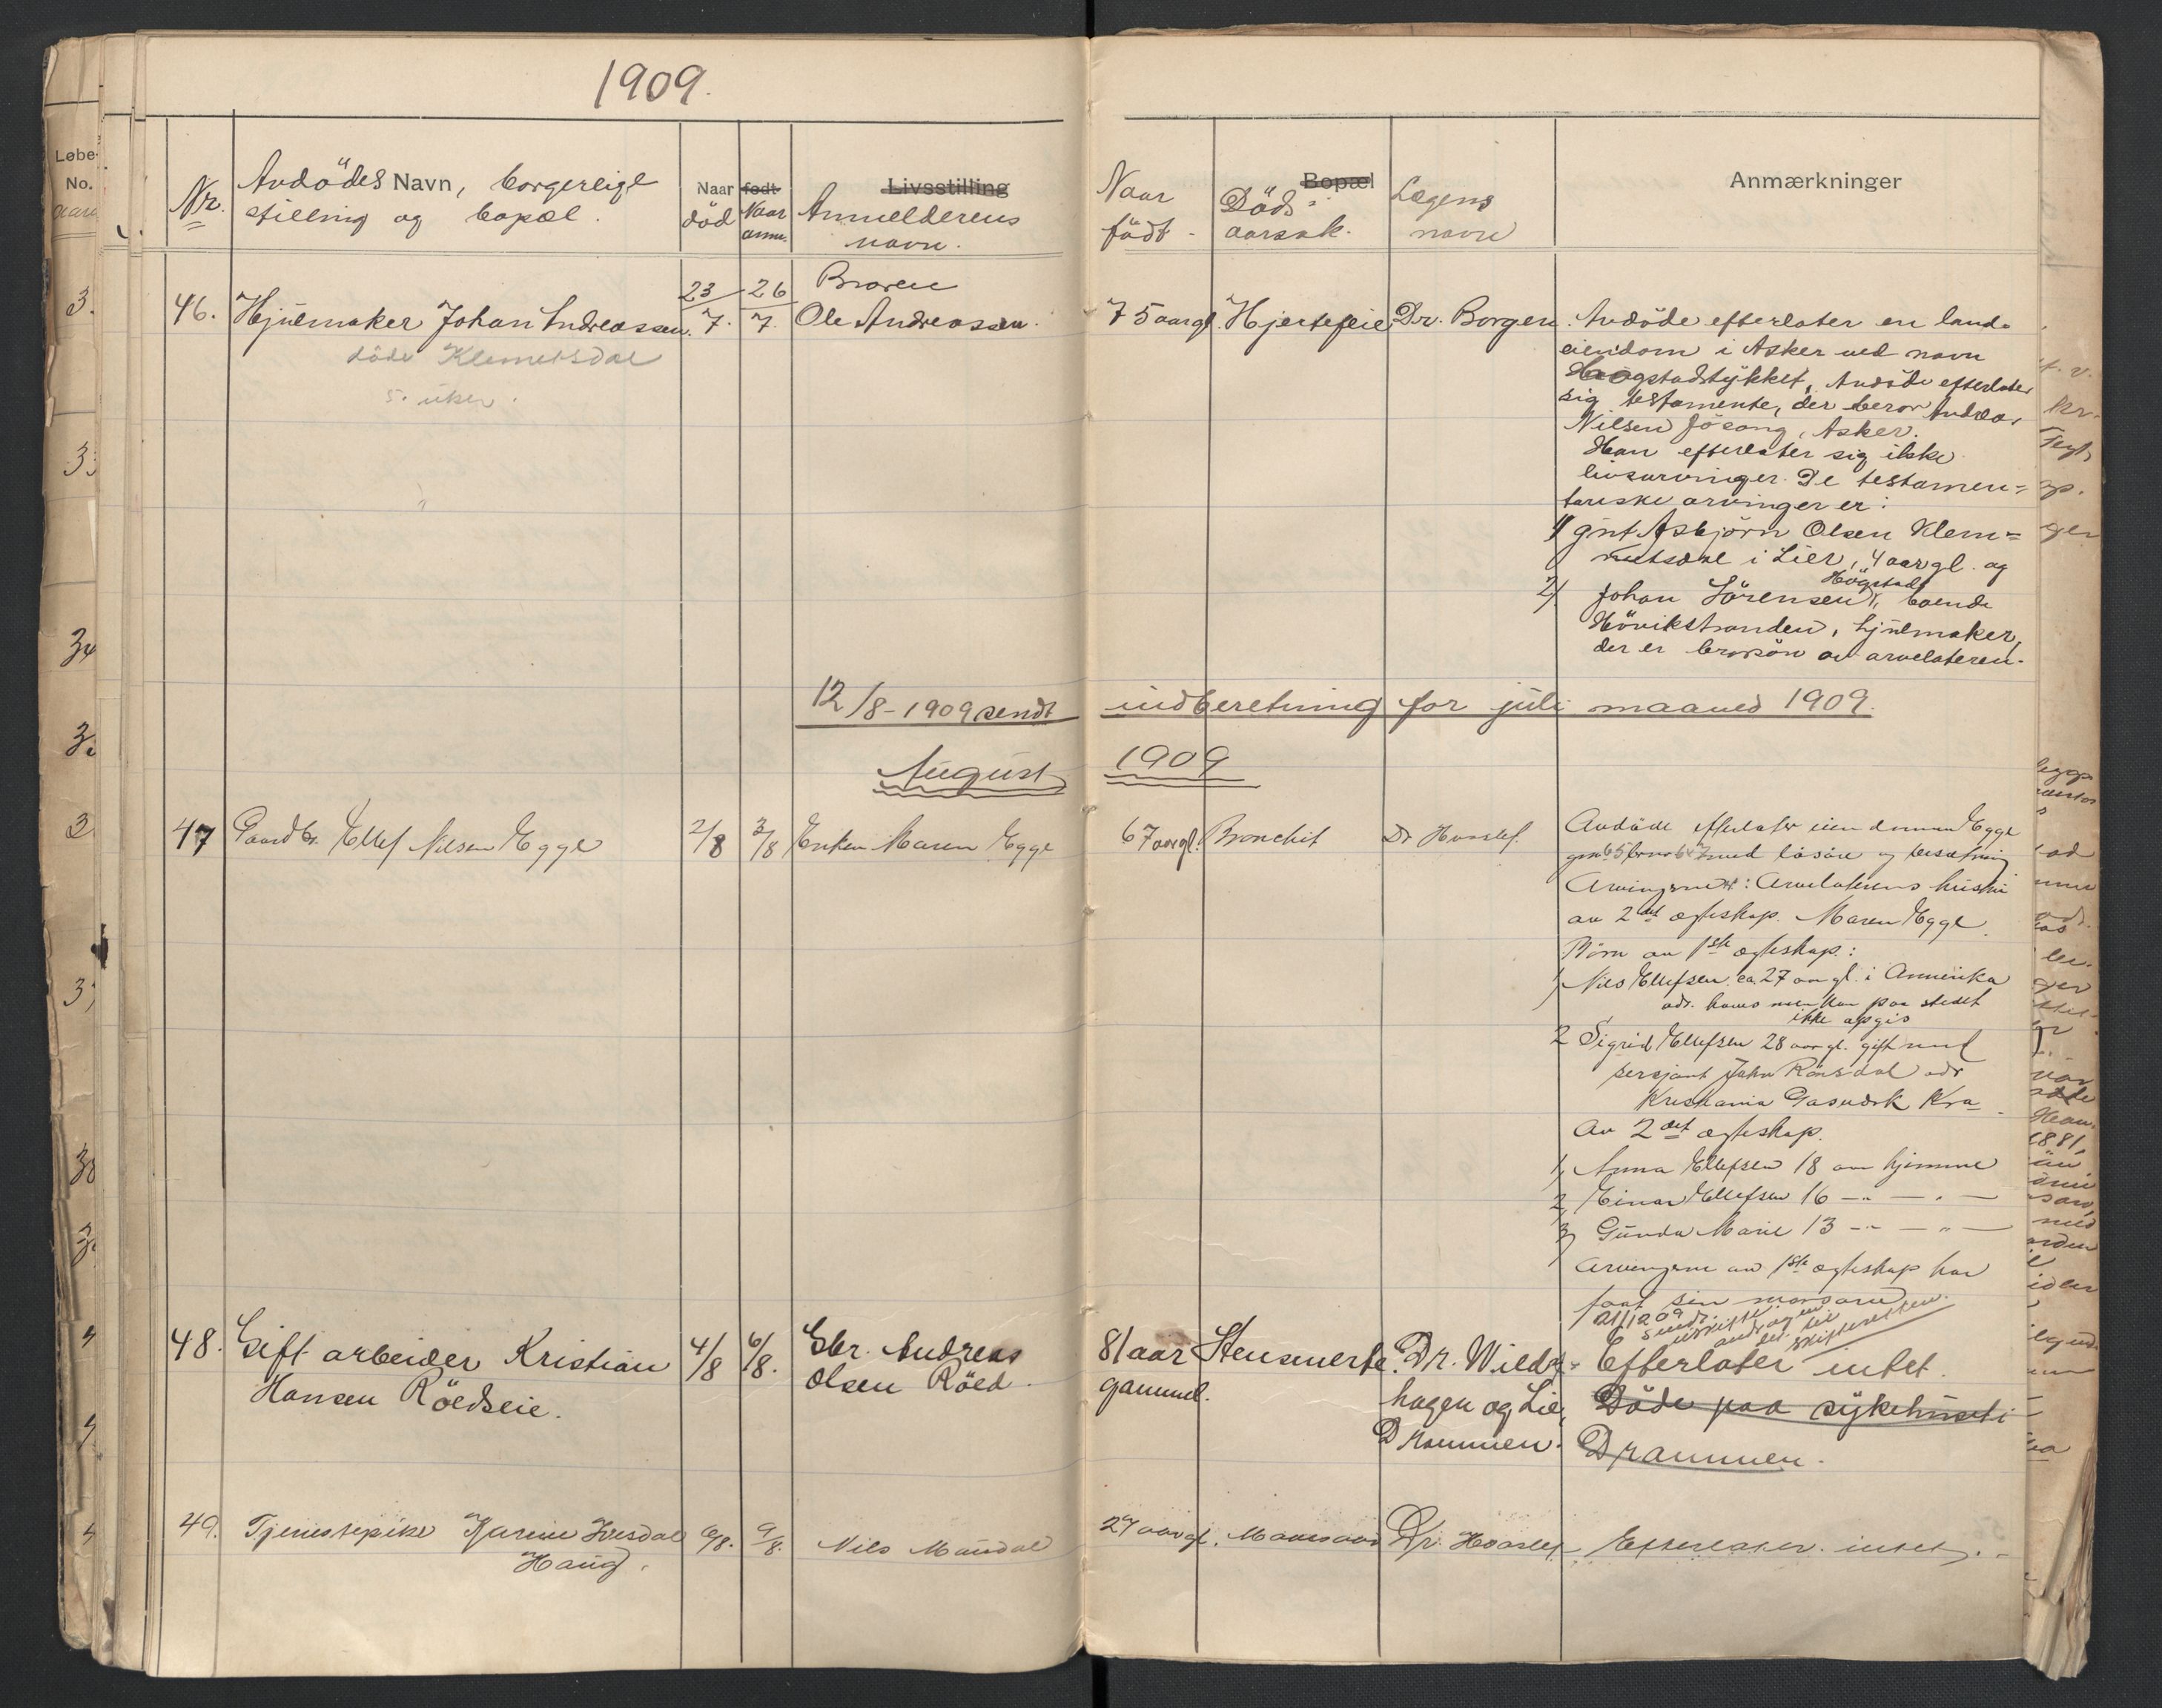 1909.
Nr.
Avdödes Navn, borgerlige
stilling og bopæl.
Naar
död
født
Naar
anm.
Livsstilling
Anmelderens
navn.
Naar
födt
Bopæl
Döds
aarsak.
Lægens
navn
Anmærkninger
46. Hjulmaker Johan Andreassen. 23/7. 26/7. Broren
Ole Andreassen. 75 aar gl. Hjertefeil Dr. Borgen.
döde Klemetsdal
5. uker.
Avdöde efterlater en land-
eiendom i Asker ved navn
Haogstadstykket. Avdöde efterlater
sig testamente, der beror Andreas
Nilsen Jösong, Asker.
Han efterlater sig ikke
livsarvinger. De testamen=
tariske arvinger er:
1) gut Asbjörn Olsen Klem=
metsdal i Lier, 4 aar gl. og
2) Johan Sörensen Högstad, boende
Hövikstranden, hjulmaker,
der er brorsön av arvelateren.
12/8-1909 sendt indberetning for juli maaned 1909.
August 1909
47 Gaardbr. Ellef Nilsen Egge 2/8 3/8 Enken Maren Egge 67 aar gl. Bronchit Dr Horslef.
Avdöde efterlater eiendommen Egge
med lösöre og besætning
Arvingerne: Arvelaterens hustru
av 2det egteskap. Maren Egge.
Börn av 1ste egteskap:
1) Nils Ellefsen ca 27 aar gl. i Amerika
adr. haves men kan paa stedet
ikke opgis
2 Sigrid Ellefsen 28 aar gl. gift med
sersjant John Rönsdal adr
Kristiania Gasverk Kra
Av 2det egteskap.
1, Anna Ellefsen 18 aar hjemme
2, Einar Ellefsen 16 -"- -"-
3, Gunda Marie 13 -"- -"-
Arvingerne av 1ste egteskap har
faat sin morsarv.
skifteretten.
48. Gift arbeider Kristian 4/8 6/8. Gbr. Andreas 81 aar Stensmerte. Dr. Wild- Efterlater intet.
Hansen Röedseie. Olsen Röed. gammel. hagen og Lie, Döde paa sykehuset i
Drammen. Drammen.
49. Tjenestepike Karine Huesdal 6/8. 9/8. Nils Maudal 27 aar gl. Mavesaar Dr. Horslef Efterlater intet.
Haug.
Løbe-
No.